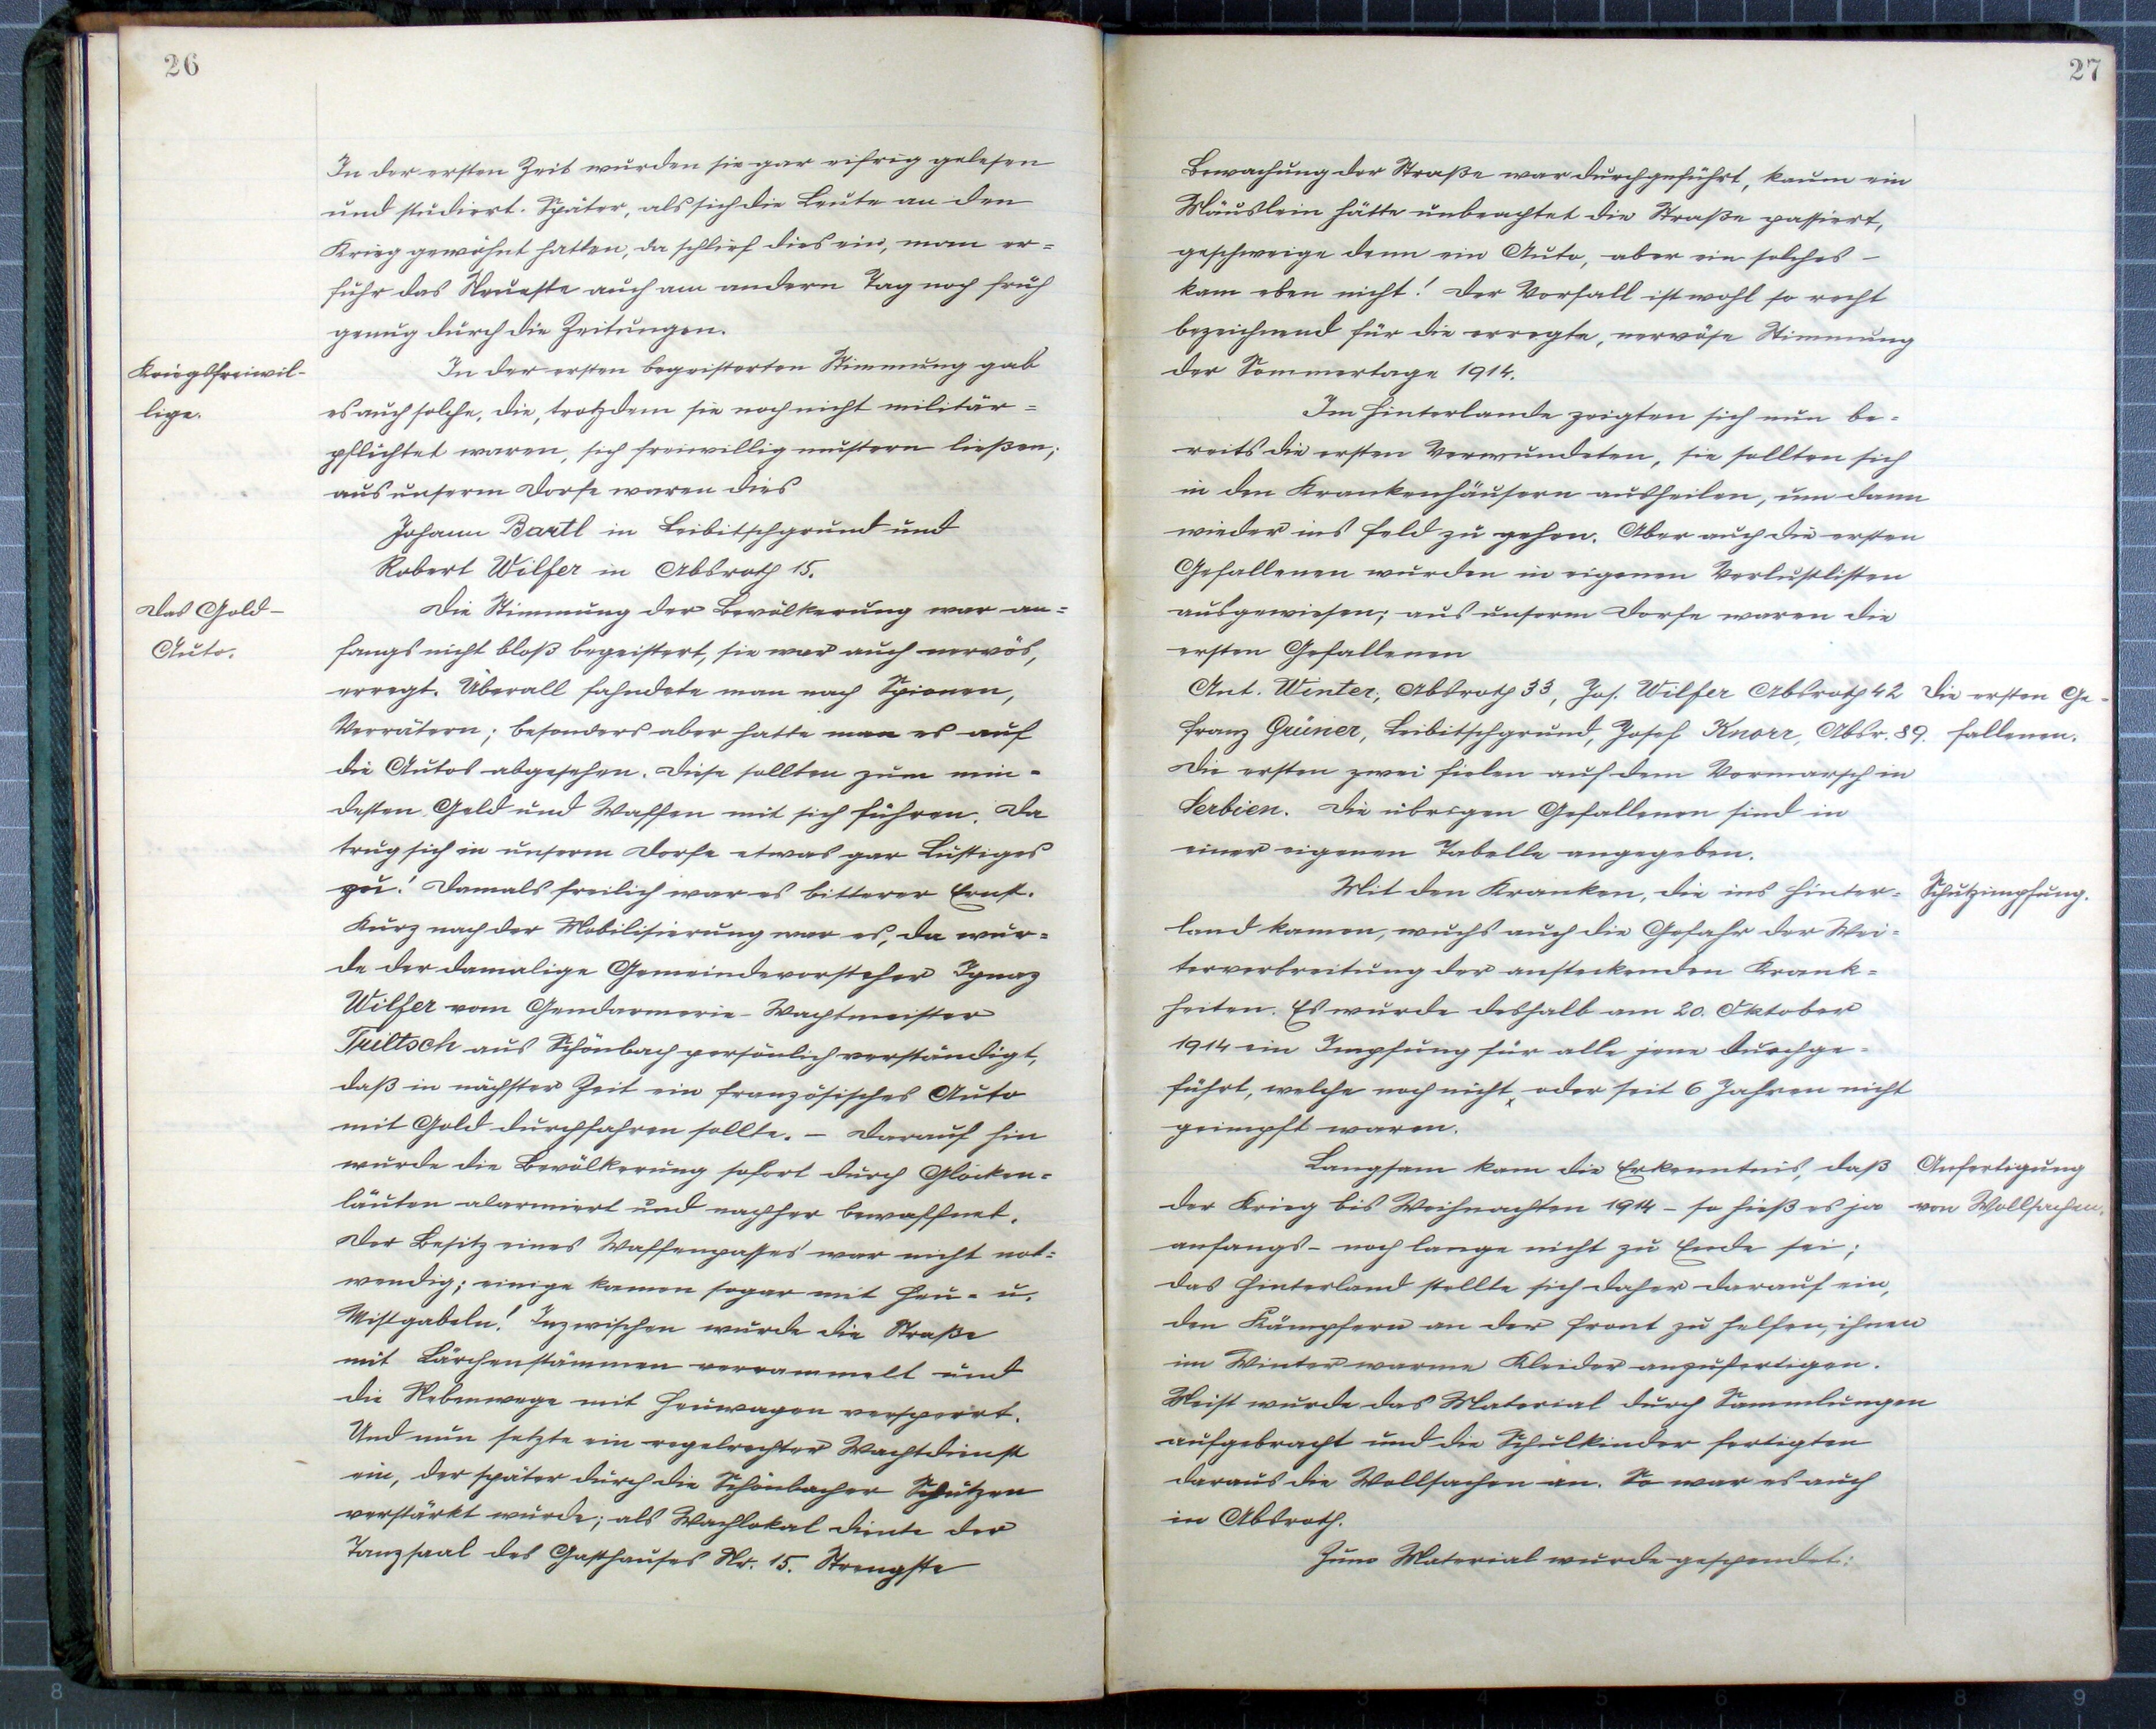 26
In der ersten Zeit wurden sie gar eifrig gelesen
und studiert. Später, als sich die Leute an den
Krieg gewöhnt hatten, da schlief dies ein, man er=
fuhr das Neueste auch am andern Tag noch früh
genug durch die Zeitungen.
Kriegsfreiwil-
lige.
In der ersten begeisterten Stimmung gab
es auch solche, die, trotzdem sie noch nicht militär=
pflichtet waren, sich freiwillig mustern ließen;
aus unserm Dorfe waren dies
Johann Bartl in Leibitschgrund und
Robert Wilfer in Absroth 15.
Das Gold-
Auto.
Die Stimmung der Bevölkerung war an=
fangs nicht bloß begeistert, sie war auch nervös,
erregt. Überall fahndete man nach Spionen,
Verrätern; besonders aber hatte man es auf
die Autos abgesehen. Diese sollten zum min=
desten Geld und Waffen mit sich führen. Da
trug sich in unserm Dorfe etwas gar Lustiges
zu! Damals freilich war es bitterer Ernst.
Kurz nach der Mobilisierung war es, da wur=
de der damalige Gemeindevorsteher Ignaz
Wilfer vom Gendarmerie-Wachtmeister
Triltsch aus Schönbach persönlich verständigt,
daß in nächster Zeit ein französisches Auto
mit Gold durchfahren sollte. – Darauf hin
wurde die Bevölkerung sofort durch Glocken=
läuten alarmiert und nachher bewaffnet.
Der Besitz eines Waffenpasses war nicht not=
wendig; einige kamen sogar mit Heu- u.
Mistgabeln! Inzwischen wurde die Straße
mit Lärchenstämmen verrammelt und
die Nebenwege mit Heuwagen versperrt.
Und nun setzte ein regelrechter Wachtdienst
ein, der später durch die Schönbacher Schützen
verstärkt wurde; als Wachlokal diente der
Tanzsaal des Gasthauses Nr. 15. Strengste
27
Bewachung der Straße war durchgeführt, kaum ein
Mäuslein hätte unbeachtet die Straße passiert,
geschweige denn ein Auto, aber ein solches –
kam eben nicht! Der Vorfall ist wohl so recht
bezeichnend für die erregte, nervöse Stimmung
der Sommertage 1914.
Im Hinterlande zeigten sich nun be=
reits die ersten Verwundeten, sie sollten sich
in den Krankenhäusern ausheilen, um dann
wieder ins Feld zu gehen. Aber auch die ersten
Gefallenen wurden in eigenen Verlustlisten
ausgewiesen; aus unserm Dorfe waren die
ersten Gefallenen
Ant. Winter, Absroth 33, Jos. Wilfer Absroth 42
Franz Grüner, Leibitschgrund, Josef Knorr, Absr. 89.
Die ersten Ge=
fallenen.
Die ersten zwei fielen auf dem Vormarsch in
Serbien. Die übrigen Gefallenen sind in
einer eigenen Tabelle angegeben.
Schutzimpfung.
Mit den Kranken, die ins Hinter=
land kamen, wuchs auch die Gefahr der Wei=
terverbreitung der ansteckenden Krank=
heiten. Es wurde deshalb am 20. Oktober
1914 ein Impfung für alle jene durchge=
führt, welche noch nicht, oder seit 6 Jahren nicht
geimpft waren.
Anfertigung
von Wollsachen.
Langsam kam die Erkenntnis, daß
der Krieg bis Weihnachten 1914 – so hieß es ja
anfangs – noch lange nicht zu Ende sei;
das Hinterland stellte sich daher darauf ein,
den Kämpfern an der Front zu helfen, ihnen
im Winter warme Kleider anzufertigen.
Meist wurde das Material durch Sammlungen
aufgebracht und die Schulkinder fertigten
daraus die Wollsachen an. So war es auch
in Absroth.
Zum Material wurde gespendet:
8
1 2 3 4 5 6 7 8 9